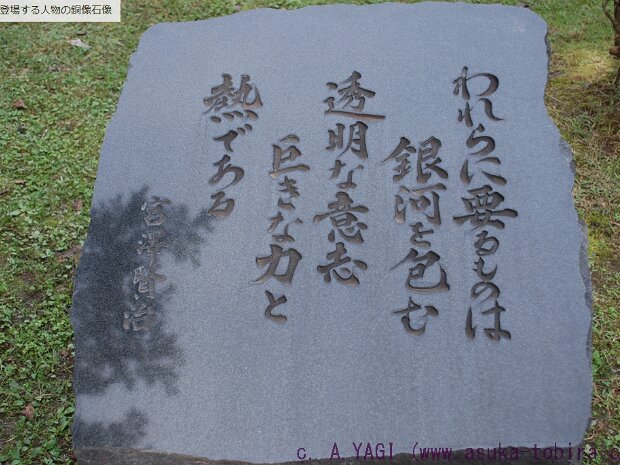 登場する人物の銅像石像
われらに要るものは
銀河を包む
透明な意志
巨きな力と
熱である
宮澤賢治
c. A.YAGI (www.asuka-tobira.c